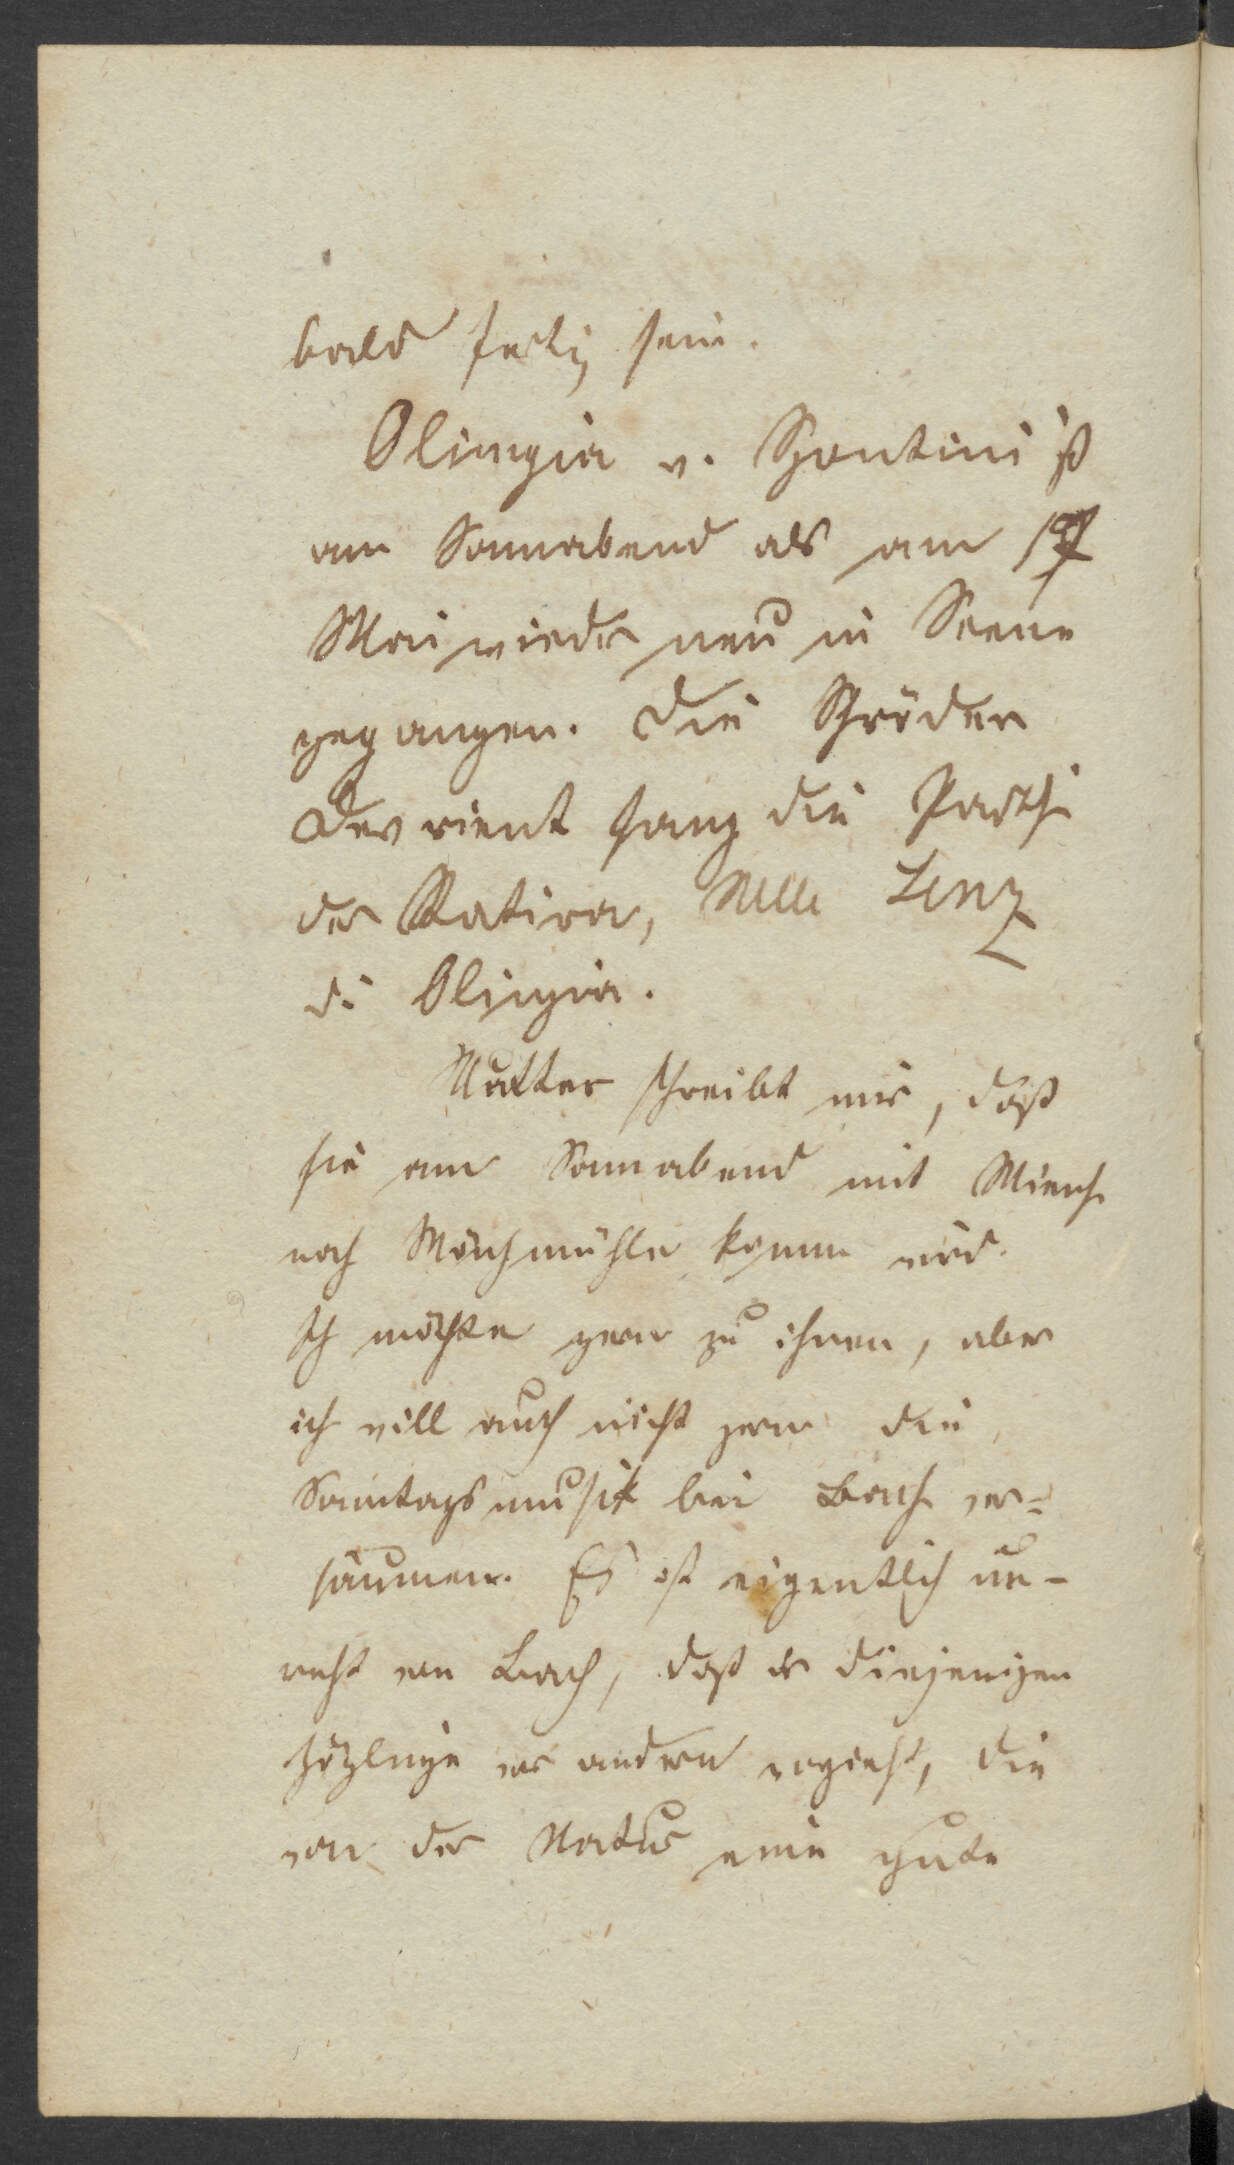 bald fertig sein.
Olimpia v. Spontini ist
am Sonnabend als am
Mai wieder neu in Scene
gegangen. Die Schröder
Devrient sang die Parthi
der Statira, Mlle Lenz
di Olimpia.
Mutter schreibt mir, daß
sie am Sonnabend mit
nach Mönchmühle komm wird.
Ich möchte gern zu ihnen, aber
ich will auch nicht gern die
Sonntagsmusik bei Bach ver=
säumen. Es ist eigentlich un-
recht von Bach, daß er diejenigen
Zöglinge vor andern vorzieht, die
von der Natur eine gute